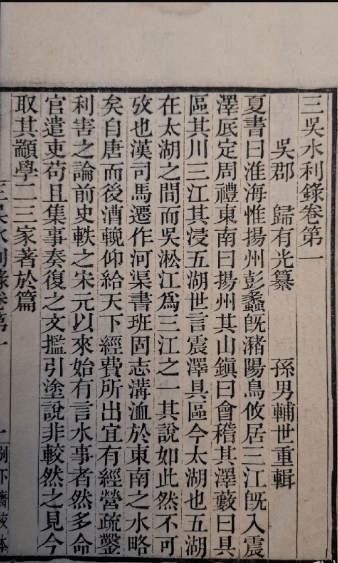 三吳水利錄卷第一
吳郡 歸有光纂 孫男輔世重輯
夏書曰淮海惟揚州彭蠡旣瀦陽鳥攸居三江旣入震
澤底定周禮東南曰揚州其山鎭曰會稽其澤藪曰具
區其川三江其浸五湖世言震澤具區今太湖也五湖
在太湖之間而吳淞江爲三江之一其說如此然不可
攷也漢司馬遷作河渠書班固志溝洫於東南之水略
矣自唐而後漕輓仰給天下經費所出宜有經營疏鑿
利害之論前史軼之宋元以來始有言水事者然多命
官遣吏苟且集事奏復之文攟引塗說非較然之見今
取其顓學二三家著於篇
三吳水利錄卷第一